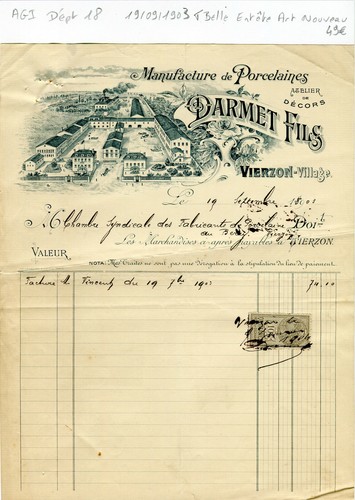 AGI Dépt 18 19/09/1903 Belle Entête Art Nouveau
49€
Manufacture de Porcelaines
ATELIER
DE
DÉCORS
DARMET FILS
VIERZON-Village.
Le 19 Septembre
Chambre Syndicale des Fabricants de Porcelaine Doit
du Berry Vierzon
Les Marchandises ci-après payables à VIERZON.
VALEUR
NOTA: Mes Traites ne sont pas une dérogation à la stipulation du lieu de paiement.
Facture Vincent du 19 7bre 74.00